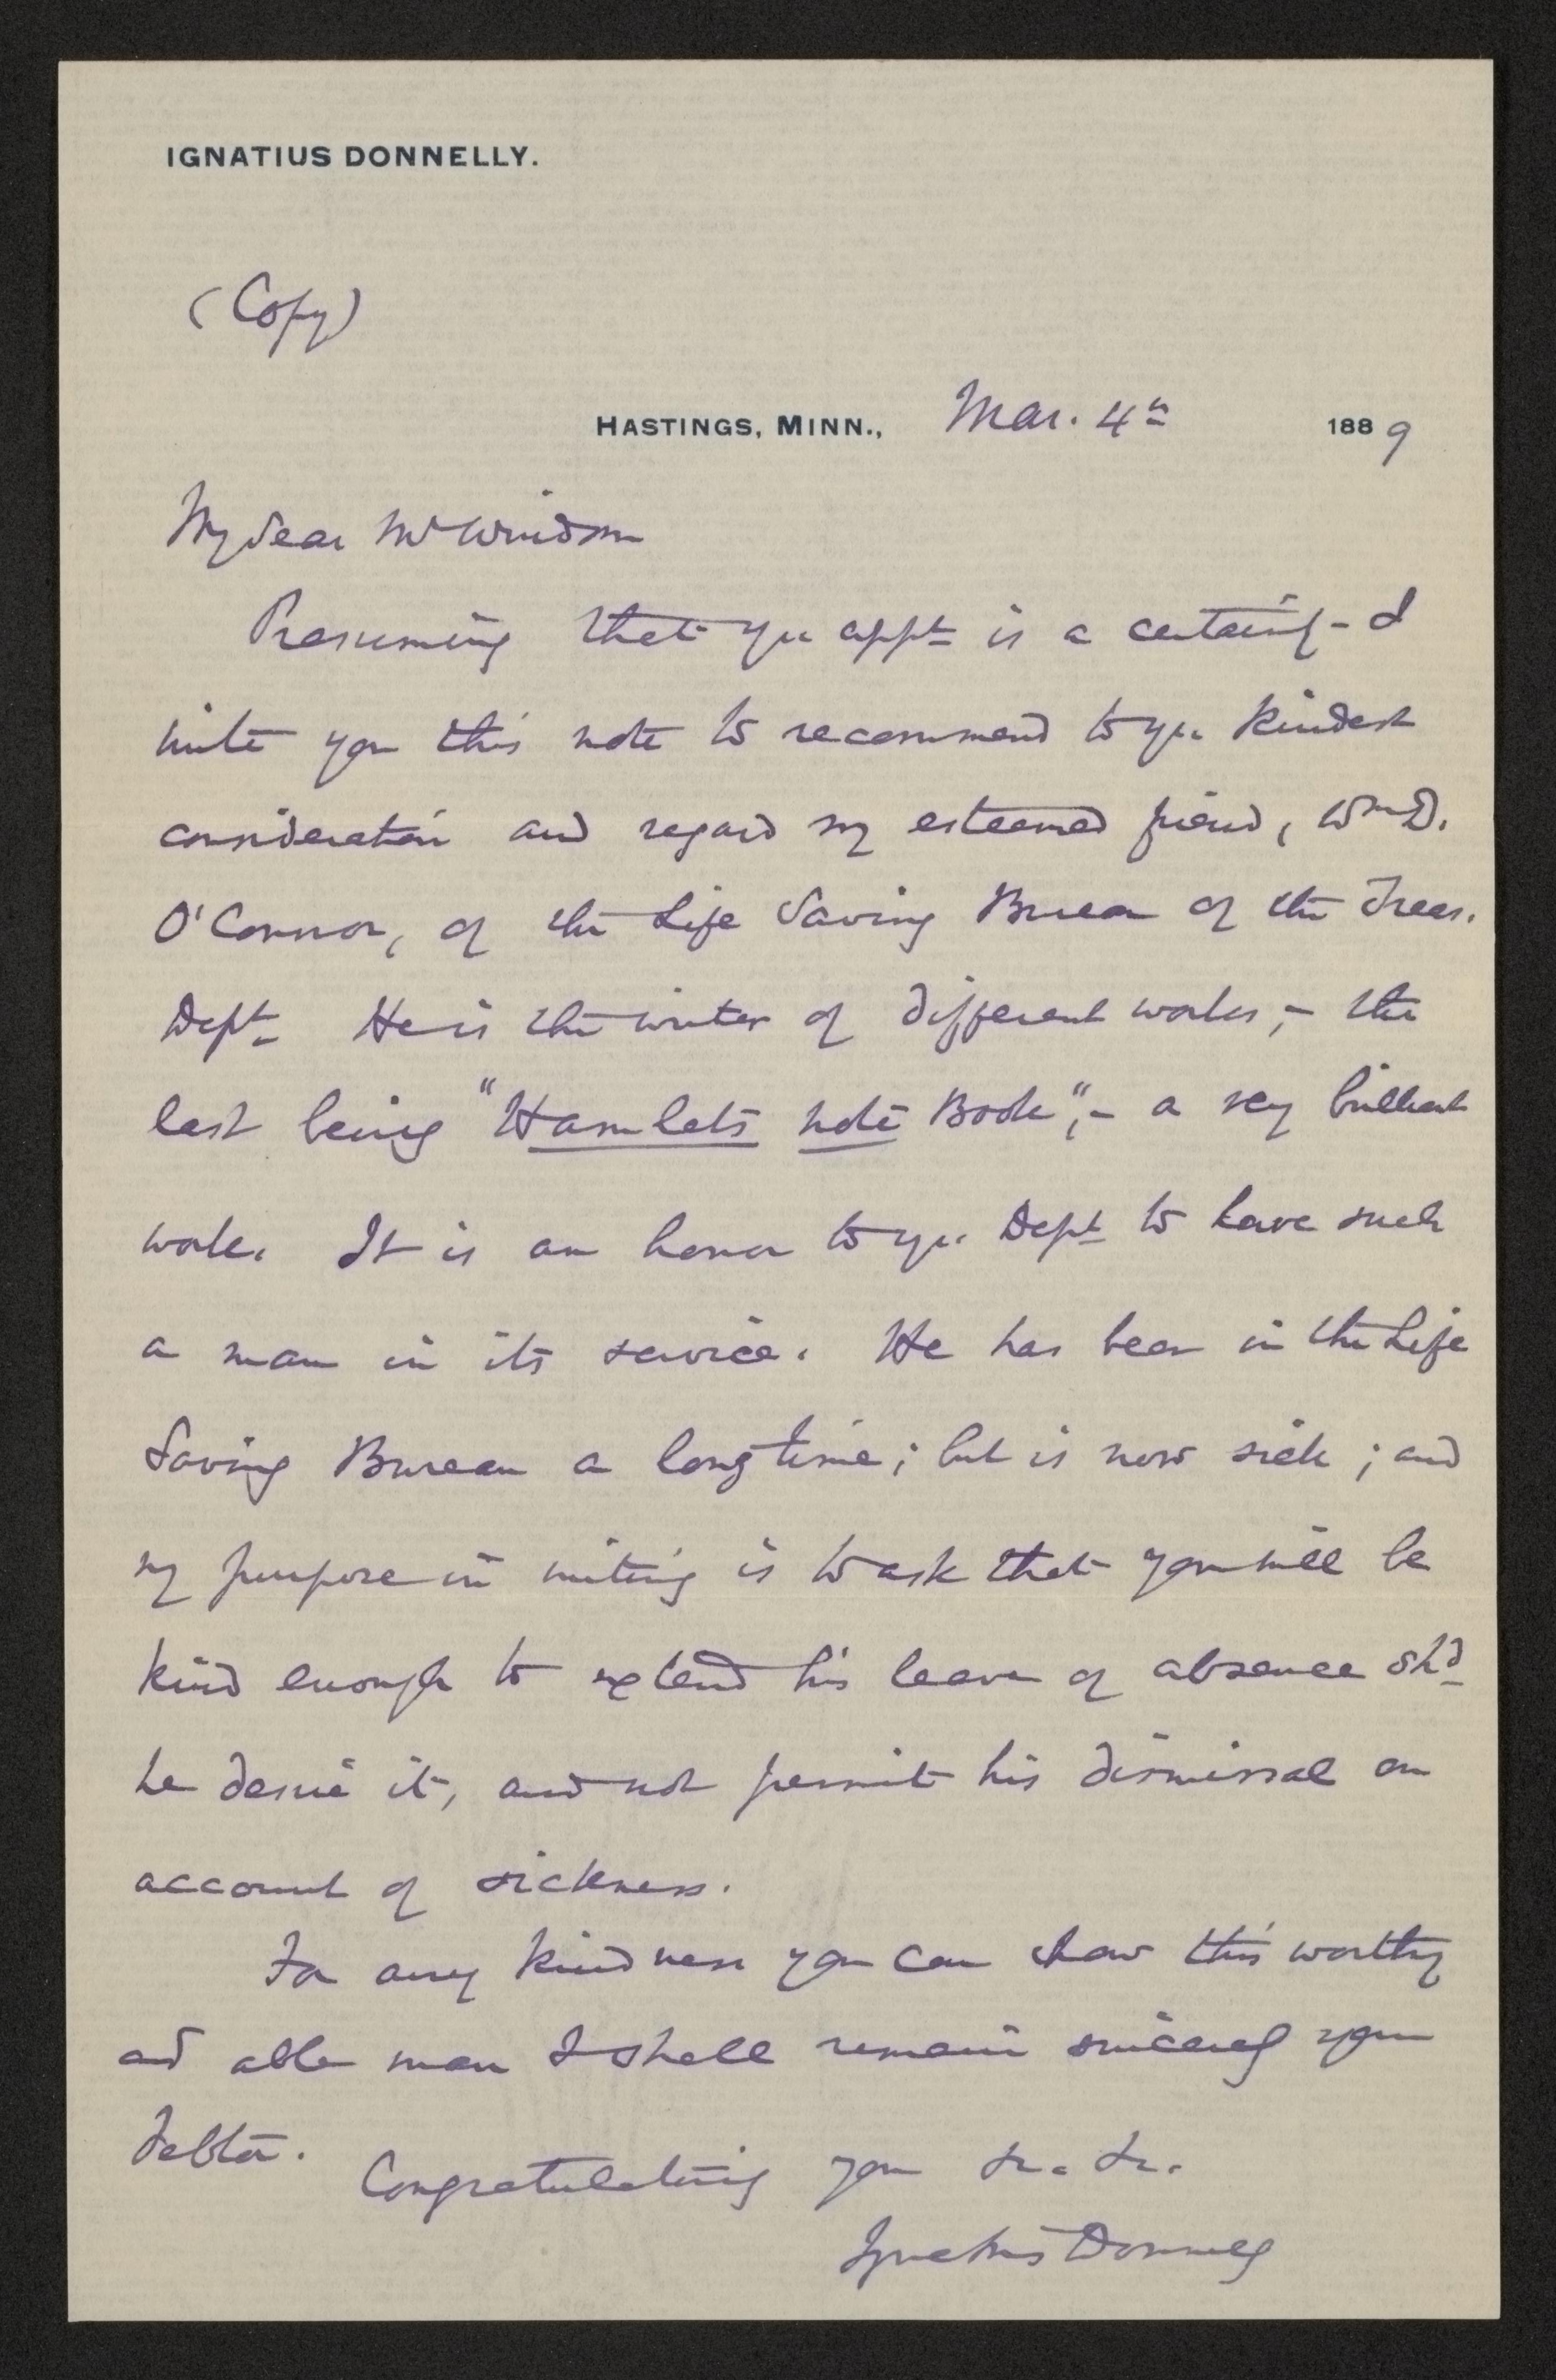 IGNATIUS DONNELLY.
(Copy)
HASTINGS, MINN., Mar. 4th 1889
My dear Mr Windom
Presuming that yr appt is a certainty - I
write you this note to recommend to yr. kindest
consideration and regard my esteemed friend, Wm D.
O'Connor, of the Life Saving Bureau of the Treas.
Dept. He is the writer of different works, - the
last being "Hamlets note Book", - a very brilliant
work. It is an honor to yr. Dept to have such
a man in its service. He has been in the Life
Saving Bureau a long time; but is now sick; and
my purpose in writing is to ask that you will be
kind enough to extend his leave of absence shd
he desire it, and not permit his dismissal on
account of sickness.
For any kindness you can show this worthy
and able man I shall remain sincerely your
debtor. Congratulating you &c. &c.
Ignatius Donnelly